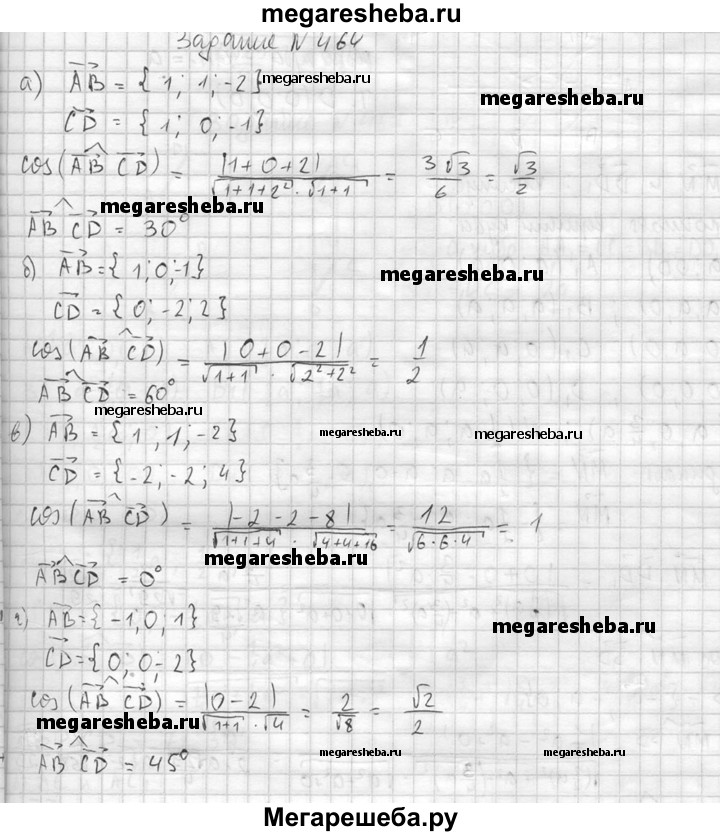 megaresheba.ru
Задание N 464
а) AB = {1; 1; -2} megaresheba.ru
megaresheba.ru
CD = {1; 0; -1}
cos(AB CD) = |1+0+2| / √1+1+2² · √1+1 = 3√3/6 = √3/2
megaresheba.ru
AB CD = 30°
б) AB = {1; 0; -1}
megaresheba.ru
CD = {0; -2; 2}
cos(AB CD) = |0+0-2| / √1+1 · √2²+2² = 1/2
AB CD = 60°
megaresheba.ru
в) AB = {1; 1; -2} megaresheba.ru megaresheba.ru
CD = {-2; -2; 4}
cos(AB CD) = |-2-2-8| / √1+1+4 · √4+4+16 = 12/√6·6·4 = 1
megaresheba.ru
AB CD = 0°
г) AB = {-1; 0; 1}
megaresheba.ru
CD = {0; 0; -2}
cos(AB CD) = |0-2| / √1+1 · √4 = 2/√8 = √2/2
megaresheba.ru
AB CD = 45° megaresheba.ru megaresheba.ru
Мегарешеба.ру